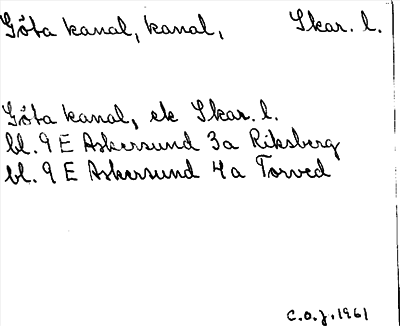 Göta kanal, kanal, Skar. l.
Göta kanal, ek Skar. l.
bl. 9 E Askersund 3a Riksberg
bl. 9 E Askersund 4a Torved
C.O.J. 1961